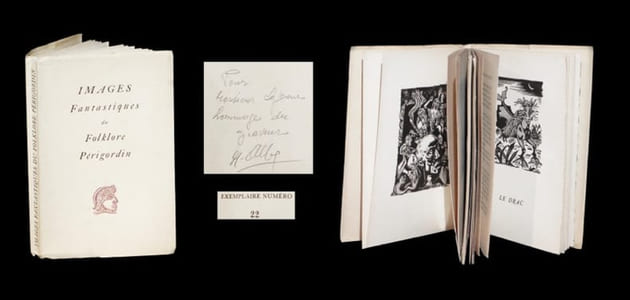 IMAGES
Fantastiques
du
Folklore
Périgordin
IMAGES FANTASTIQUES DU FOLKLORE PÉRIGORDIN
Pour
Monsieur
hommages du
graveur
EXEMPLAIRE NUMÉRO
22
LE DRAC